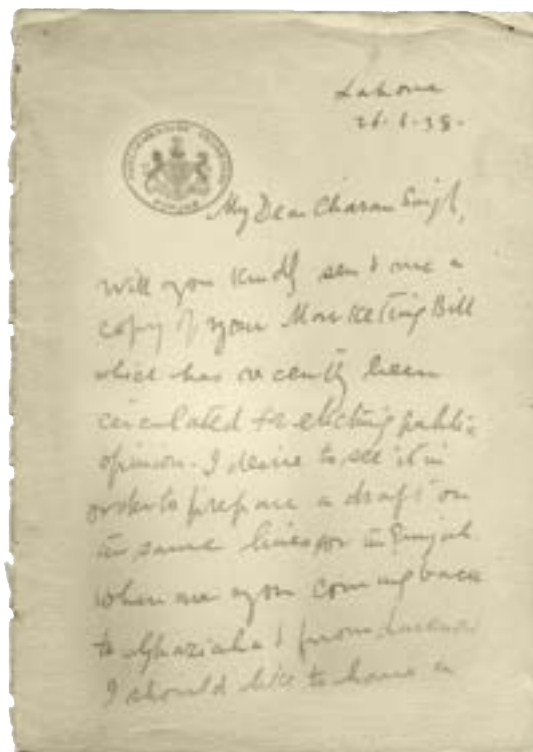 Lahore
26.6.38.
My Dear Charan Singh,
Will you kindly send me a
copy of your Marketing Bill
which has recently been
circulated for eliciting public
opinion. I desire to see it in
order to prepare a draft on
the same lines for the Punjab.
When are you coming back
to Ghaziabad from Lucknow
I should like to have a